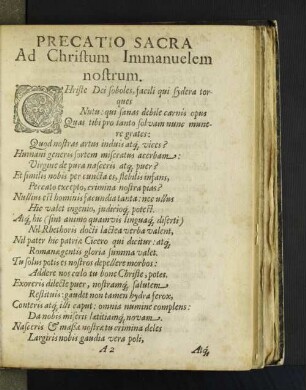 PRECATIO SACRA
Ad Christum Immanuelem
nostrum.
CHriste Dei soboles, facili qui sydera tor-
ques
Nutu: qui sanas debile carnis opus
Quas tibi pro tanto solvam nunc mune-
re grates:
Quod nostras artus induis atq, vices?
Humani generis sortem miseratus acerbam:
Virgine de pura nasceris atq, puer?
Et similis nobis per cuncta es, flebilis infans,
Peccato excepto, crimina nostra pias?
Nullius est hominis facundia tanta: nec ullus
Hic valet ingenio, judicioq, potest.
Atq, hic (sint animo quamvis linguaq, diserti)
Nil Rhethores docti lactea verba valent,
Nil pater hic patriæ Cicero qui dicitur: atq,
Romanæ gentis gloria summa valet.
Tu solus potis es nostros depellere morbos:
Addere nos cœlo tu bone Christe, potes.
Exoreris dilecte puer, nostramq, salutem
Restituis: gaudet non tamen hydra ferox,
Conteris atq, illi caput: omnia numine complens:
Da nobis miseris lætitiamq, novam.
Nasceris & massa nostra tu crimina deles
Largiris nobis gaudia vera poli,
A 2
Atq,